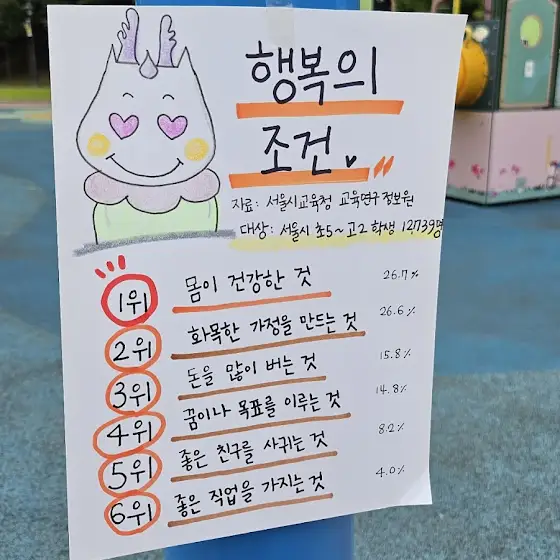 행복의
조건
자료: 서울시교육청 교육연구정보원
대상: 서울시 초5~고2 학생 12,739명
1위 몸이 건강한 것 26.7%
2위 화목한 가정을 만드는 것 26.6%
3위 돈을 많이 버는 것 15.8%
4위 꿈이나 목표를 이루는 것 14.8%
5위 좋은 친구를 사귀는 것 8.2%
6위 좋은 직업을 가지는 것 4.0%